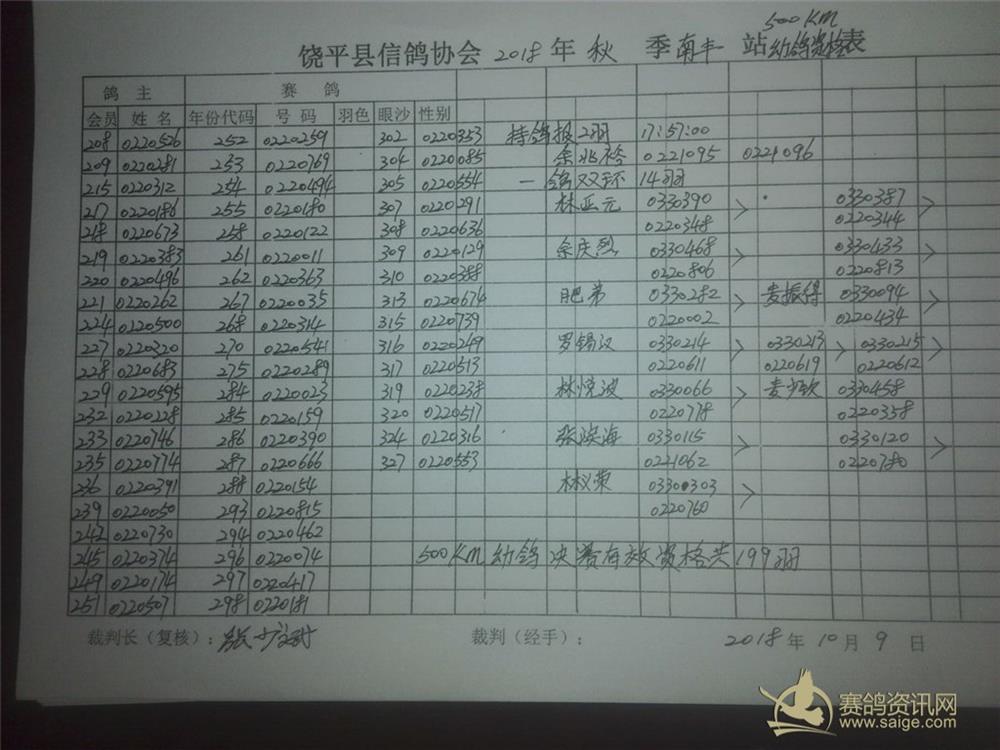 500KM
饶平县信鸽协会 2018 年 秋 季 南丰 站 幼鸽资格表
鸽 主 赛 鸽
会员 姓 名 年份代码 号 码 羽色 眼沙 性别
208 0220526 252 0220259 302 0220353 持鸽报2羽 17:57:00
209 0220281 253 0220769 304 0220085 余兆裕 0221095 0221096
215 0220312 254 0220494 305 0220554 一鸽双环 14羽
217 0220186 255 0220180 307 0220291 林正元 0330390 > 0330387 >
218 0220673 258 0220122 308 0220636 0220348 0220344
219 0220383 261 0220011 309 0220129 余庆烈 0330468 > 0330433 >
220 0220496 262 0220363 310 0220388 0220806 0220813
221 0220262 267 0220035 313 0220674 肥弟 0330282 > 麦振锋 0330094 >
224 0220500 268 0220314 315 0220739 0220002 0220434
227 0220320 270 0220541 316 0220249 罗锡汉 0330214 > 0330213 > 0330215 >
228 0220683 275 0220289 317 0220513 0220611 0220619 0220612
229 0220595 284 0220023 319 0220238 林悦波 0330066 > 麦少钦 0330458 >
232 0220228 285 0220159 320 0220517 0220778 0220358
233 0220746 286 0220390 324 0220316 张滨海 0330115 > 0330120 >
235 0220774 287 0220666 327 0220553 0221062 0220780
236 0220391 288 0220154 林义荣 0330303 >
239 0220050 293 0220815 0220760
242 0220730 294 0220462
245 0220374 296 0220074 500KM幼鸽决赛有效资格共199羽
249 0220174 297 0220417
251 0220507 298 0220181
裁判长（复核）： 裁判（经手）： 2018 年 10 月 9 日
赛鸽资讯网
www.saige.com